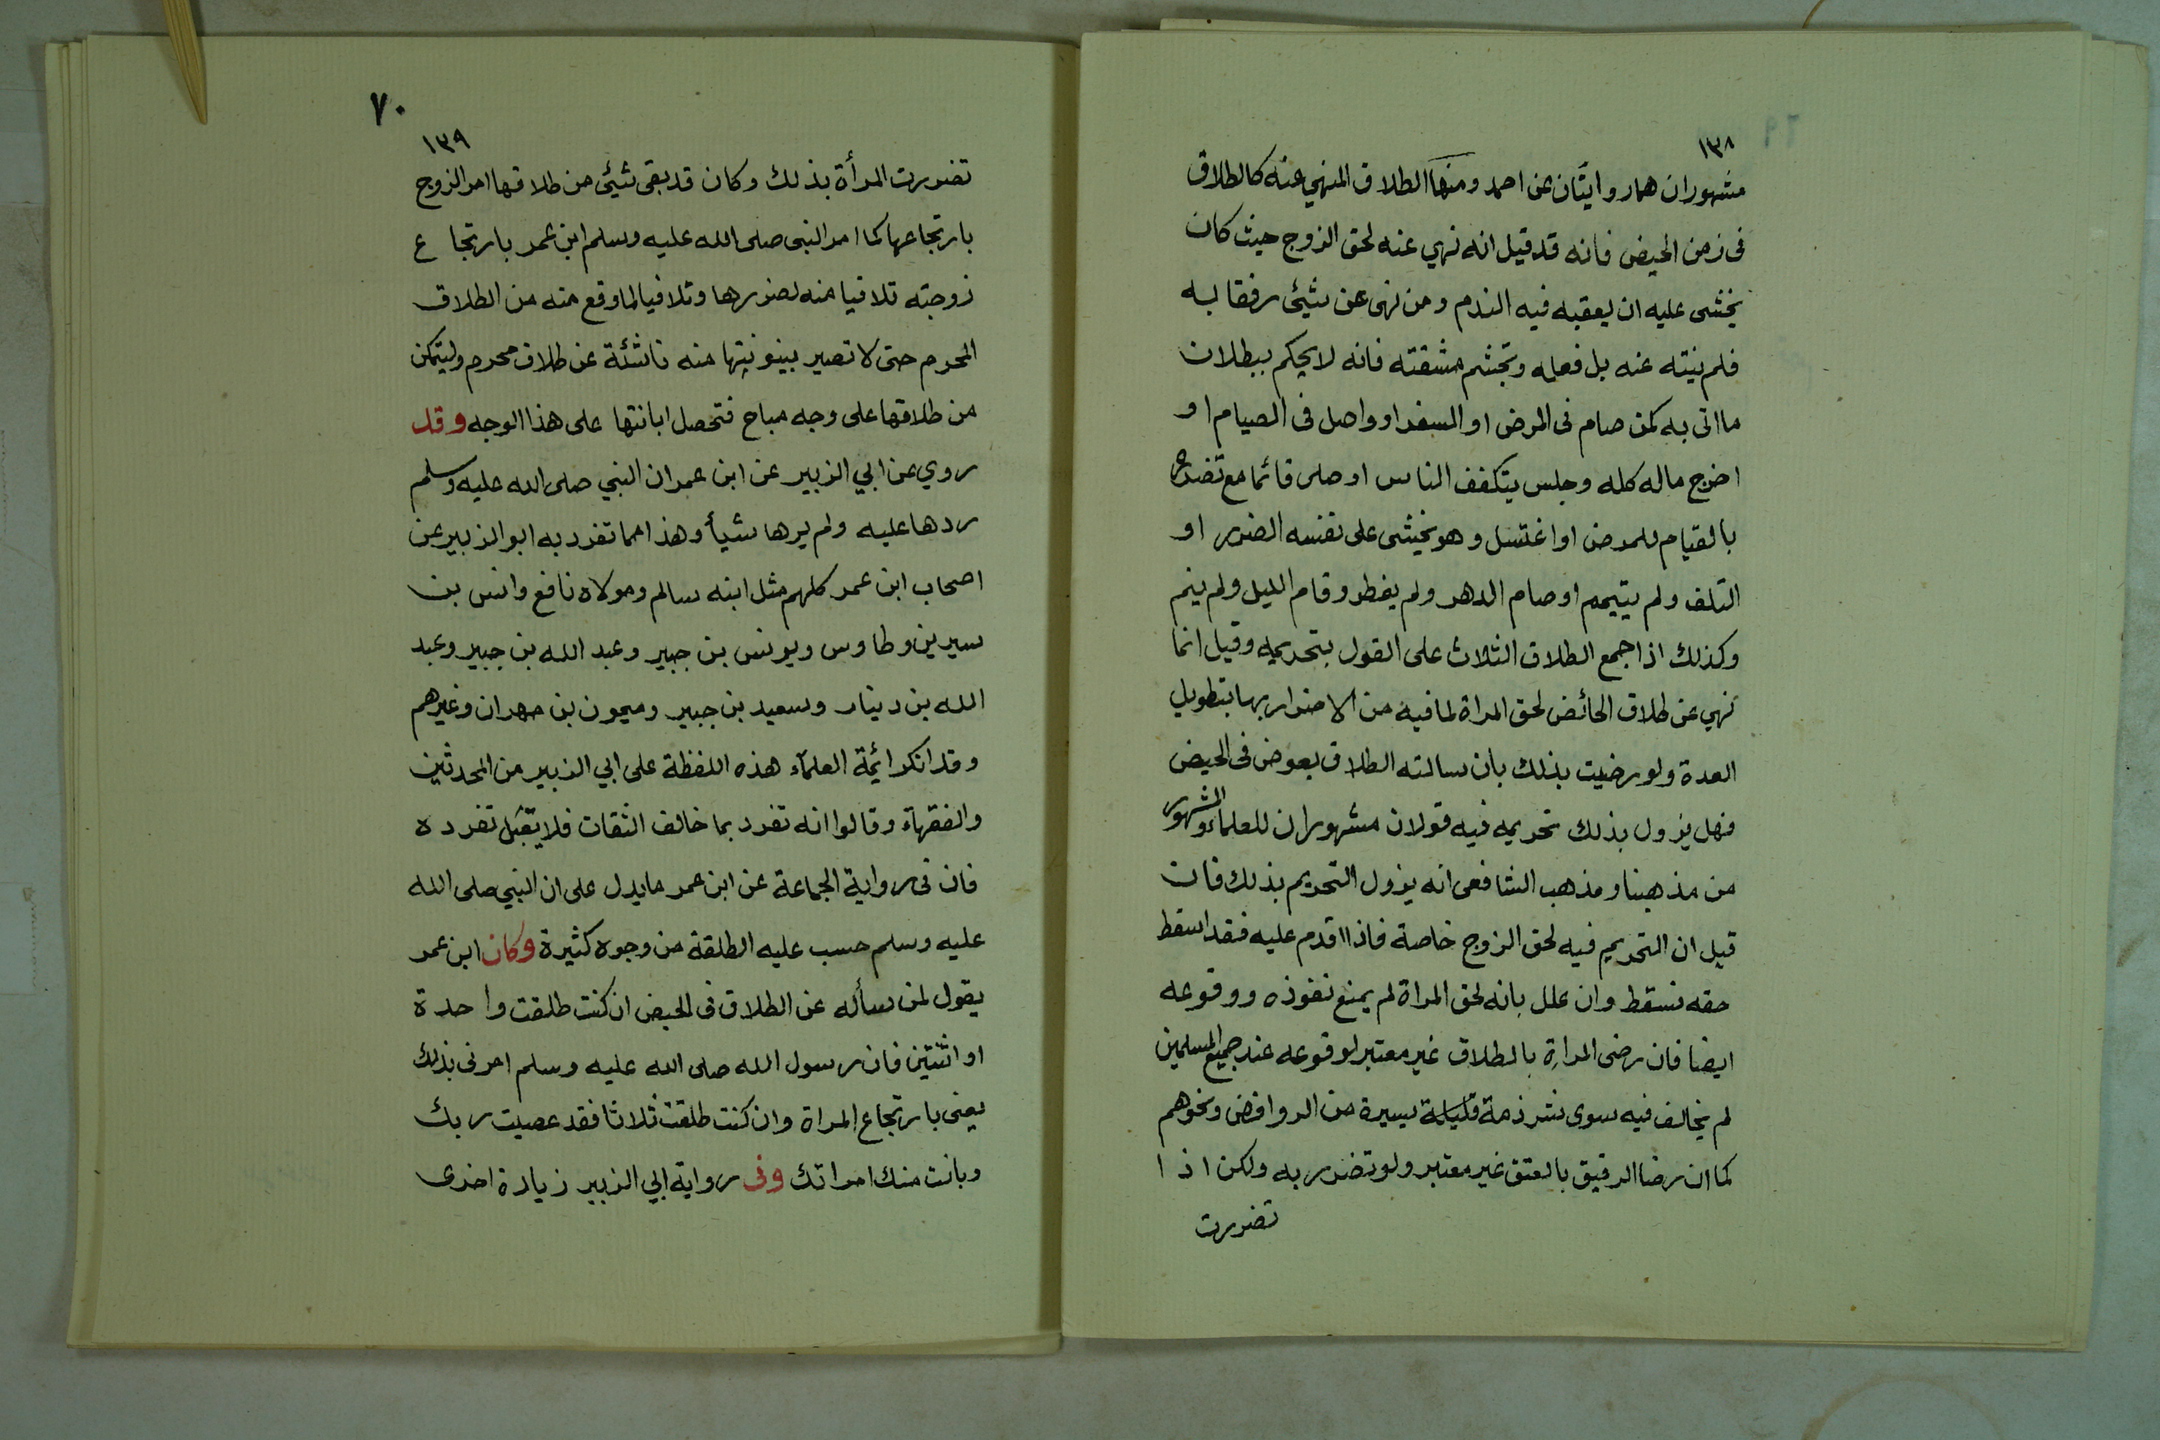 ١٣٨
مشهوران هما روايتان عن احمد ومنها الطلاق المنهي عنه كالطلاق
فى زمن الحيض فانه قد قيل انه نهي عنه لحق الزوج حيث كان
يخشى عليه ان يعقبه فيه الندم ومن نهى عن شيئ رفقا به
فلم ينته عنه بل فعله وتجشم مشقته فانه لا يحكم ببطلان
ما اتى به كمن صام فى المرض او السفر او واصل فى الصيام او
اخرج ماله كله وجلس يتكفف الناس او صلى قائما مع تضرره
بالقيام للمرض او اغتسل وهو يخشى على نفسه الضرر او
التلف ولم يتيمم او صام الدهر ولم يفطر وقام الليل ولم ينم
وكذلك اذا جمع الطلاق الثلاث على القول بتحريمه وقيل انما
نهي عن طلاق الحائض لحق المراة لما فيه من الاضرار بها بتطويل
العدة ولو رضيت بذلك بان سالته الطلاق بعوض فى الحيض
فهل يزول بذلك تحريمه فيه قولان مشهوران للعلماء والمشهور
من مذهبنا ومذهب الشافعى انه يزول التحريم بذلك فان
قيل ان التحريم فيه لحق الزوج خاصة فاذا اقدم عليه فقد اسقط
حقه فسقط وان علل بانه لحق المراة لم يمنع نفوذه ووقوعه
ايضا فان رضى المراة بالطلاق غير معتبر لوقوعه عند جميع المسلمين
لم يخالف فيه سوى شرذمة قليلة يسيرة من الروافض ونحوهم
كما ان رضا الرقيق بالعتق غير معتبر ولو تضرر به ولكن اذا
تضررت
٧٠
١٣٩
تضررت المرأة بذلك وكان قد بقى شيئ من طلاقها امر الزوج
بارتجاعها كما امر النبى صلى الله عليه وسلم ابن عمر بارتجاع
زوجته تلافيا منه لضررها وتلافيا لما وقع منه من الطلاق
المحرم حتى لا تصير بينونتها منه ناشئة عن طلاق محرم وليتمكن
من طلاقها على وجه مباح فتحصل ابانتها على هذا الوجه وقد
روي عن ابي الزبير عن ابن عمر ان النبي صلى الله عليه وسلم
ردها عليه ولم يرها شيأ وهذا مما تفرد به ابو الزبير عن
اصحاب ابن عمر كلهم مثل ابنه سالم ومولاه نافع وانس بن
سيرين وطاوس ويونس بن جبير وعبد الله بن جبير وعبد
الله بن دينار وسعيد بن جبير وميمون بن مهران وغيرهم
وقد انكر ائمة العلمآء هذه اللفظة على ابي الزبير من المحدثين
والفقهآء وقالوا انه تفرد بما خالف الثقات فلا يقبل تفرده
فان فى رواية الجماعة عن ابن عمر ما يدل على ان النبي صلى الله
عليه وسلم حسب عليه الطلقة من وجوه كثيرة وكان ابن عمر
يقول لمن سأله عن الطلاق فى الحيض ان كنت طلقت واحدة
او اثنتين فان رسول الله صلى الله عليه وسلم امرنى بذلك
يعنى بارتجاع المراة وان كنت طلقت ثلاثا فقد عصيت ربك
وبانت منك امراتك وفى رواية ابي الزبير زيادة اخرى